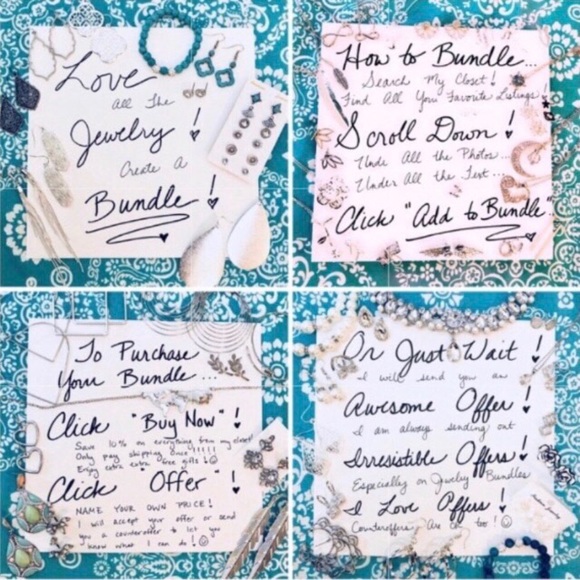 Love
All The
Jewelry!
Create A
Bundle!
How to Bundle...
Search My Closet!
Find All Your Favorite Listings!
Scroll Down!
Unde All the Photos...
Under All the Text...
Click "Add to Bundle"
To Purchase
Your Bundle...
Click "Buy Now"!
Save 10% on everything from my closet!
Only pay shipping once!!!!!
Enjoy extra extra free gifts!
Click "Offer"!
NAME YOUR OWN PRICE!
I will accept your offer or send
you a counteroffer to let you
know what I can do!
Or Just Wait!
I will send you an
Awesome Offer!
I am always sending out
Irresistible Offers!
Especially on Jewelry Bundles
I Love Offers!
Counteroffers Are too!